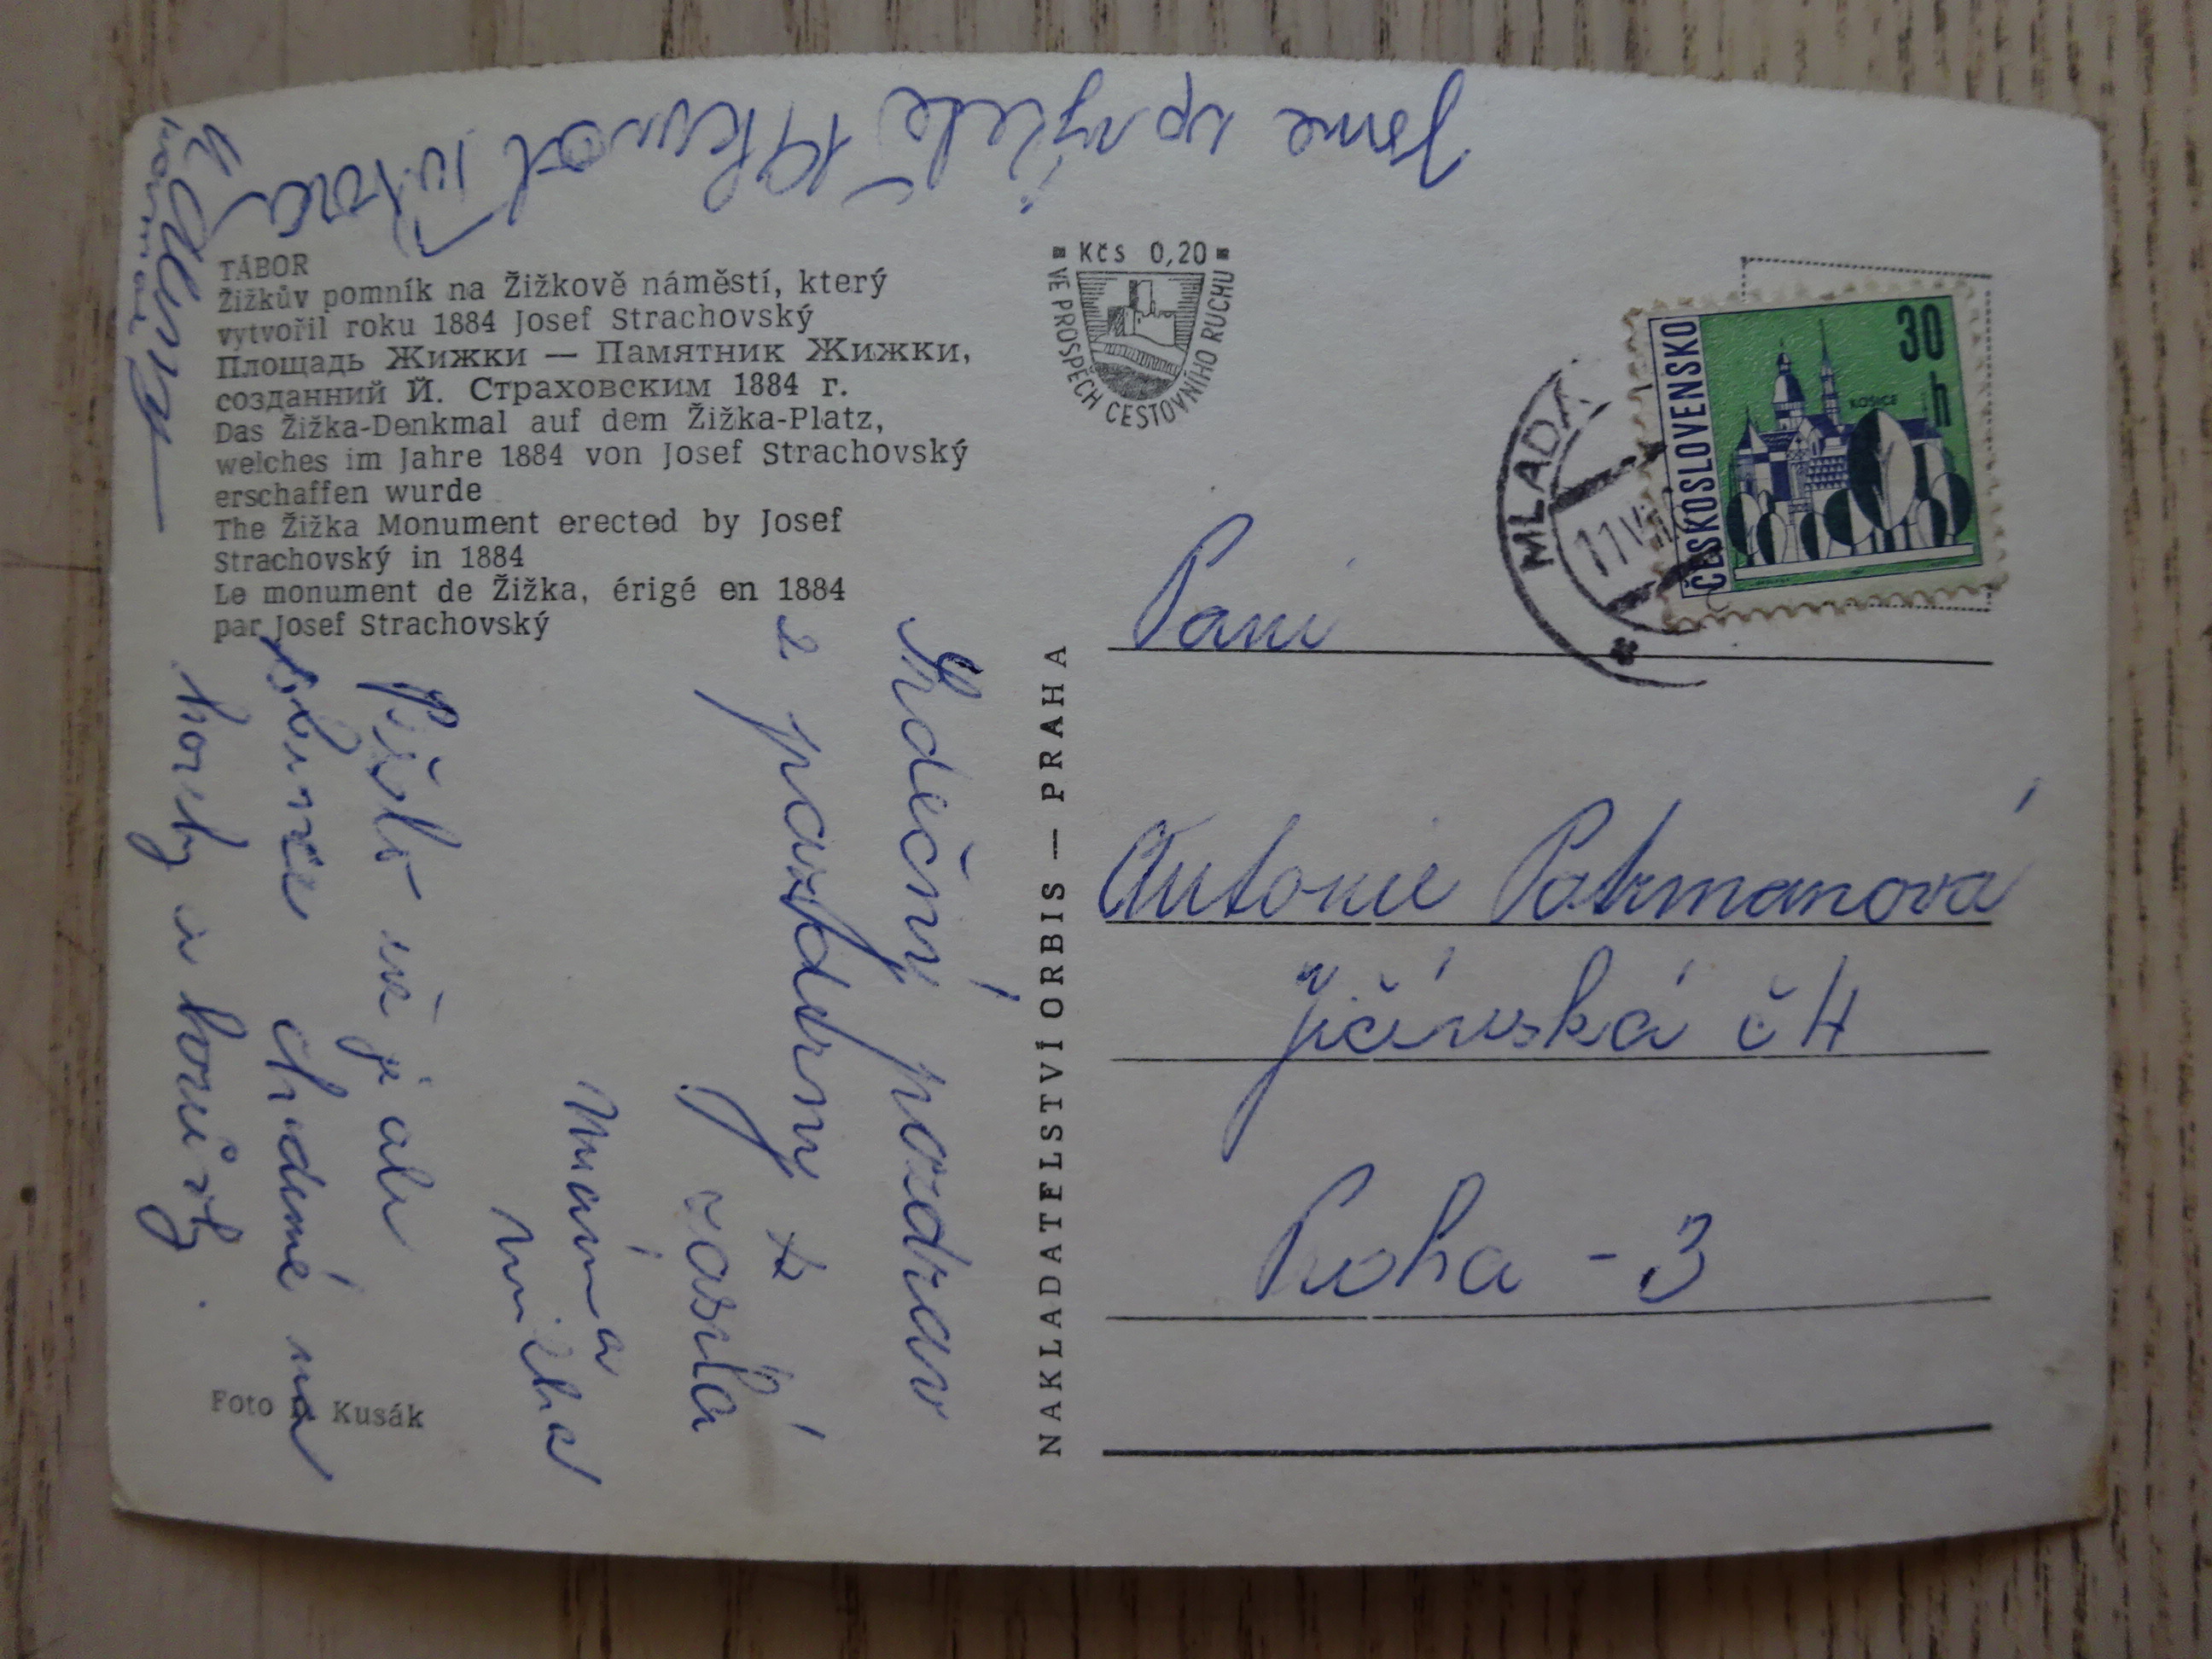 TÁBOR
Žižkův pomník na Žižkově náměstí, který
vytvořil roku 1884 Josef Strachovský
Площадь Жижки — Памятник Жижки,
созданний Й. Страховским 1884 г.
Das Žižka-Denkmal auf dem Žižka-Platz,
welches im Jahre 1884 von Josef Strachovský
erschaffen wurde
The Žižka Monument erected by Josef
Strachovský in 1884
Le monument de Žižka, érigé en 1884
par Josef Strachovský
Kčs 0,20
VE PROSPĚCH CESTOVNÍHO RUCHU
ČESKOSLOVENSKO
30 h
KOŠICE
MLADÁ
11 VII
NAKLADATELSTVÍ ORBIS — PRAHA
Foto Kusák
Paní
Antonie Patrmanová
Jičínská č 4
Praha - 3
Srdečný pozdrav
z prázdnin
zasílá
Máma
Jsme v
chodíme na
houby a borůvky.